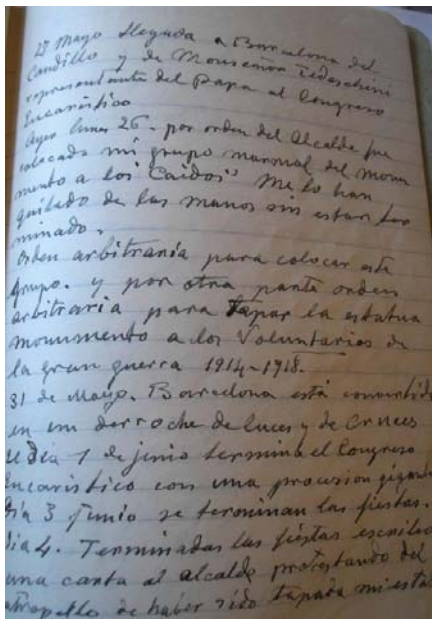 27 Mayo Llegada a Barcelona del
Caudillo y de Monseñor Tedeschini
representante del Papa al Congreso
Eucaristico
Ayer lunes 26. por orden del Alcalde fue
colocado mi grupo marmol del Monu
mento a los Caidos" Me lo han
quitado de las manos sin estar ter
minado.
Orden arbitraria para colocar este
grupo. y por otra parte orden
arbitraria para tapar la estatua
monumento a los Voluntarios de
la gran guerra 1914-1918.
31 de Mayo. Barcelona está convertida
en un derroche de luces y de cruces
El Dia 1 de junio termina el Congreso
Eucaristico con una procesion gigante
Dia 3 junio se terminan las fiestas.
Dia 4. Terminadas las fiestas escribo
una carta al alcalde protestando del
atropello de haber sido tapada mi esta